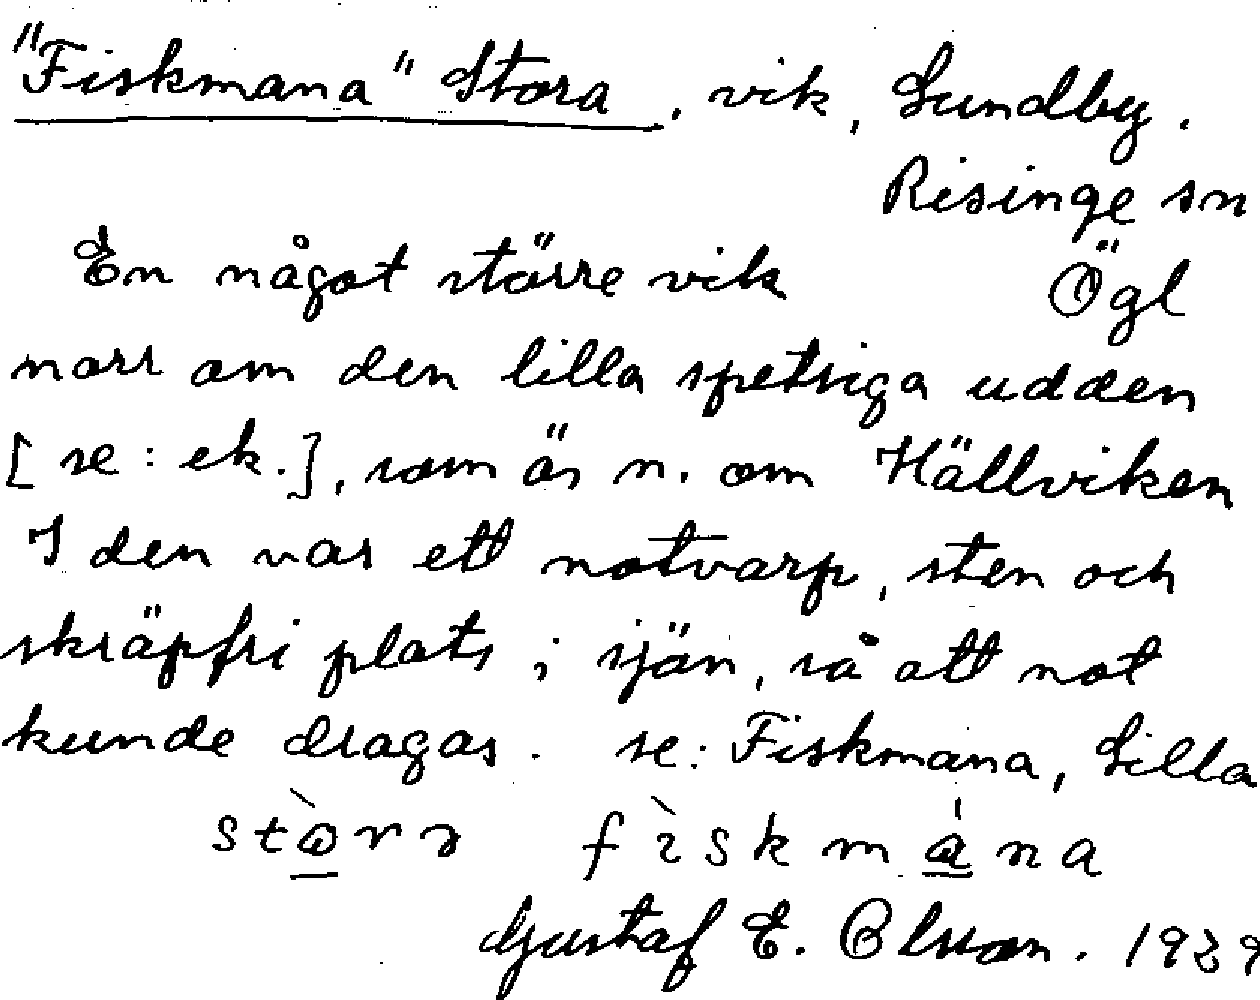 "Fiskmana" Stora, vik, Lundby.
Risinge sn
En något större vik Ögl
norr om den lilla spetsiga udden
[se: ek.], som är n. om Hällviken
I den var ett notvarp, sten och
skräpfri plats i sjön, så att not
kunde dragas. se: Fiskmana, Lilla
fìskmána
Gustaf E. Olsson. 1939